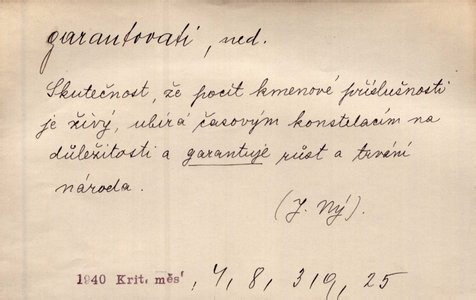 garantovati, ned.
Skutečnost, že pocit kmenové příslušnosti
je živý, ubírá časovým konstelacím na
důležitosti a garantuje růst a trvání
národa.
(J. Ný).
1940 Krit. měs., 7, 8, 319, 25